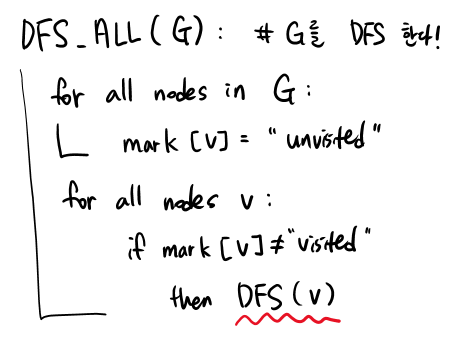 DFS_ALL(G): # G를 DFS 한다!
for all nodes in G:
mark [v] = "unvisited"
for all nodes v:
if mark [v] ≠ "visited"
then DFS (v)